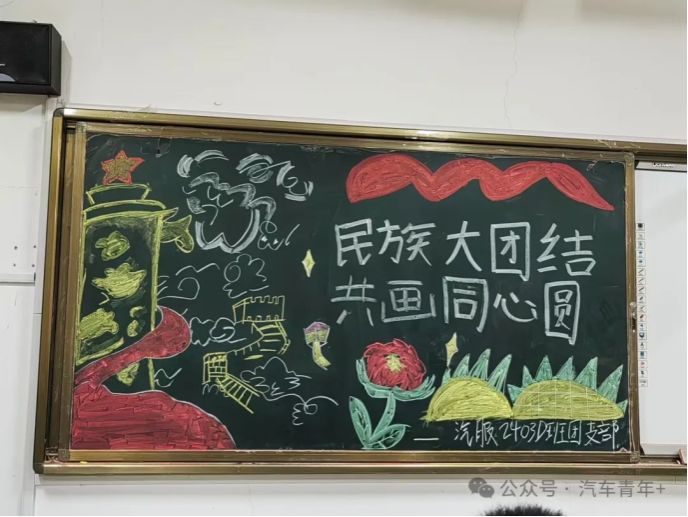 民族大团结
共画同心圆
— 汽服2403D班团支部
公众号 · 汽车青年+